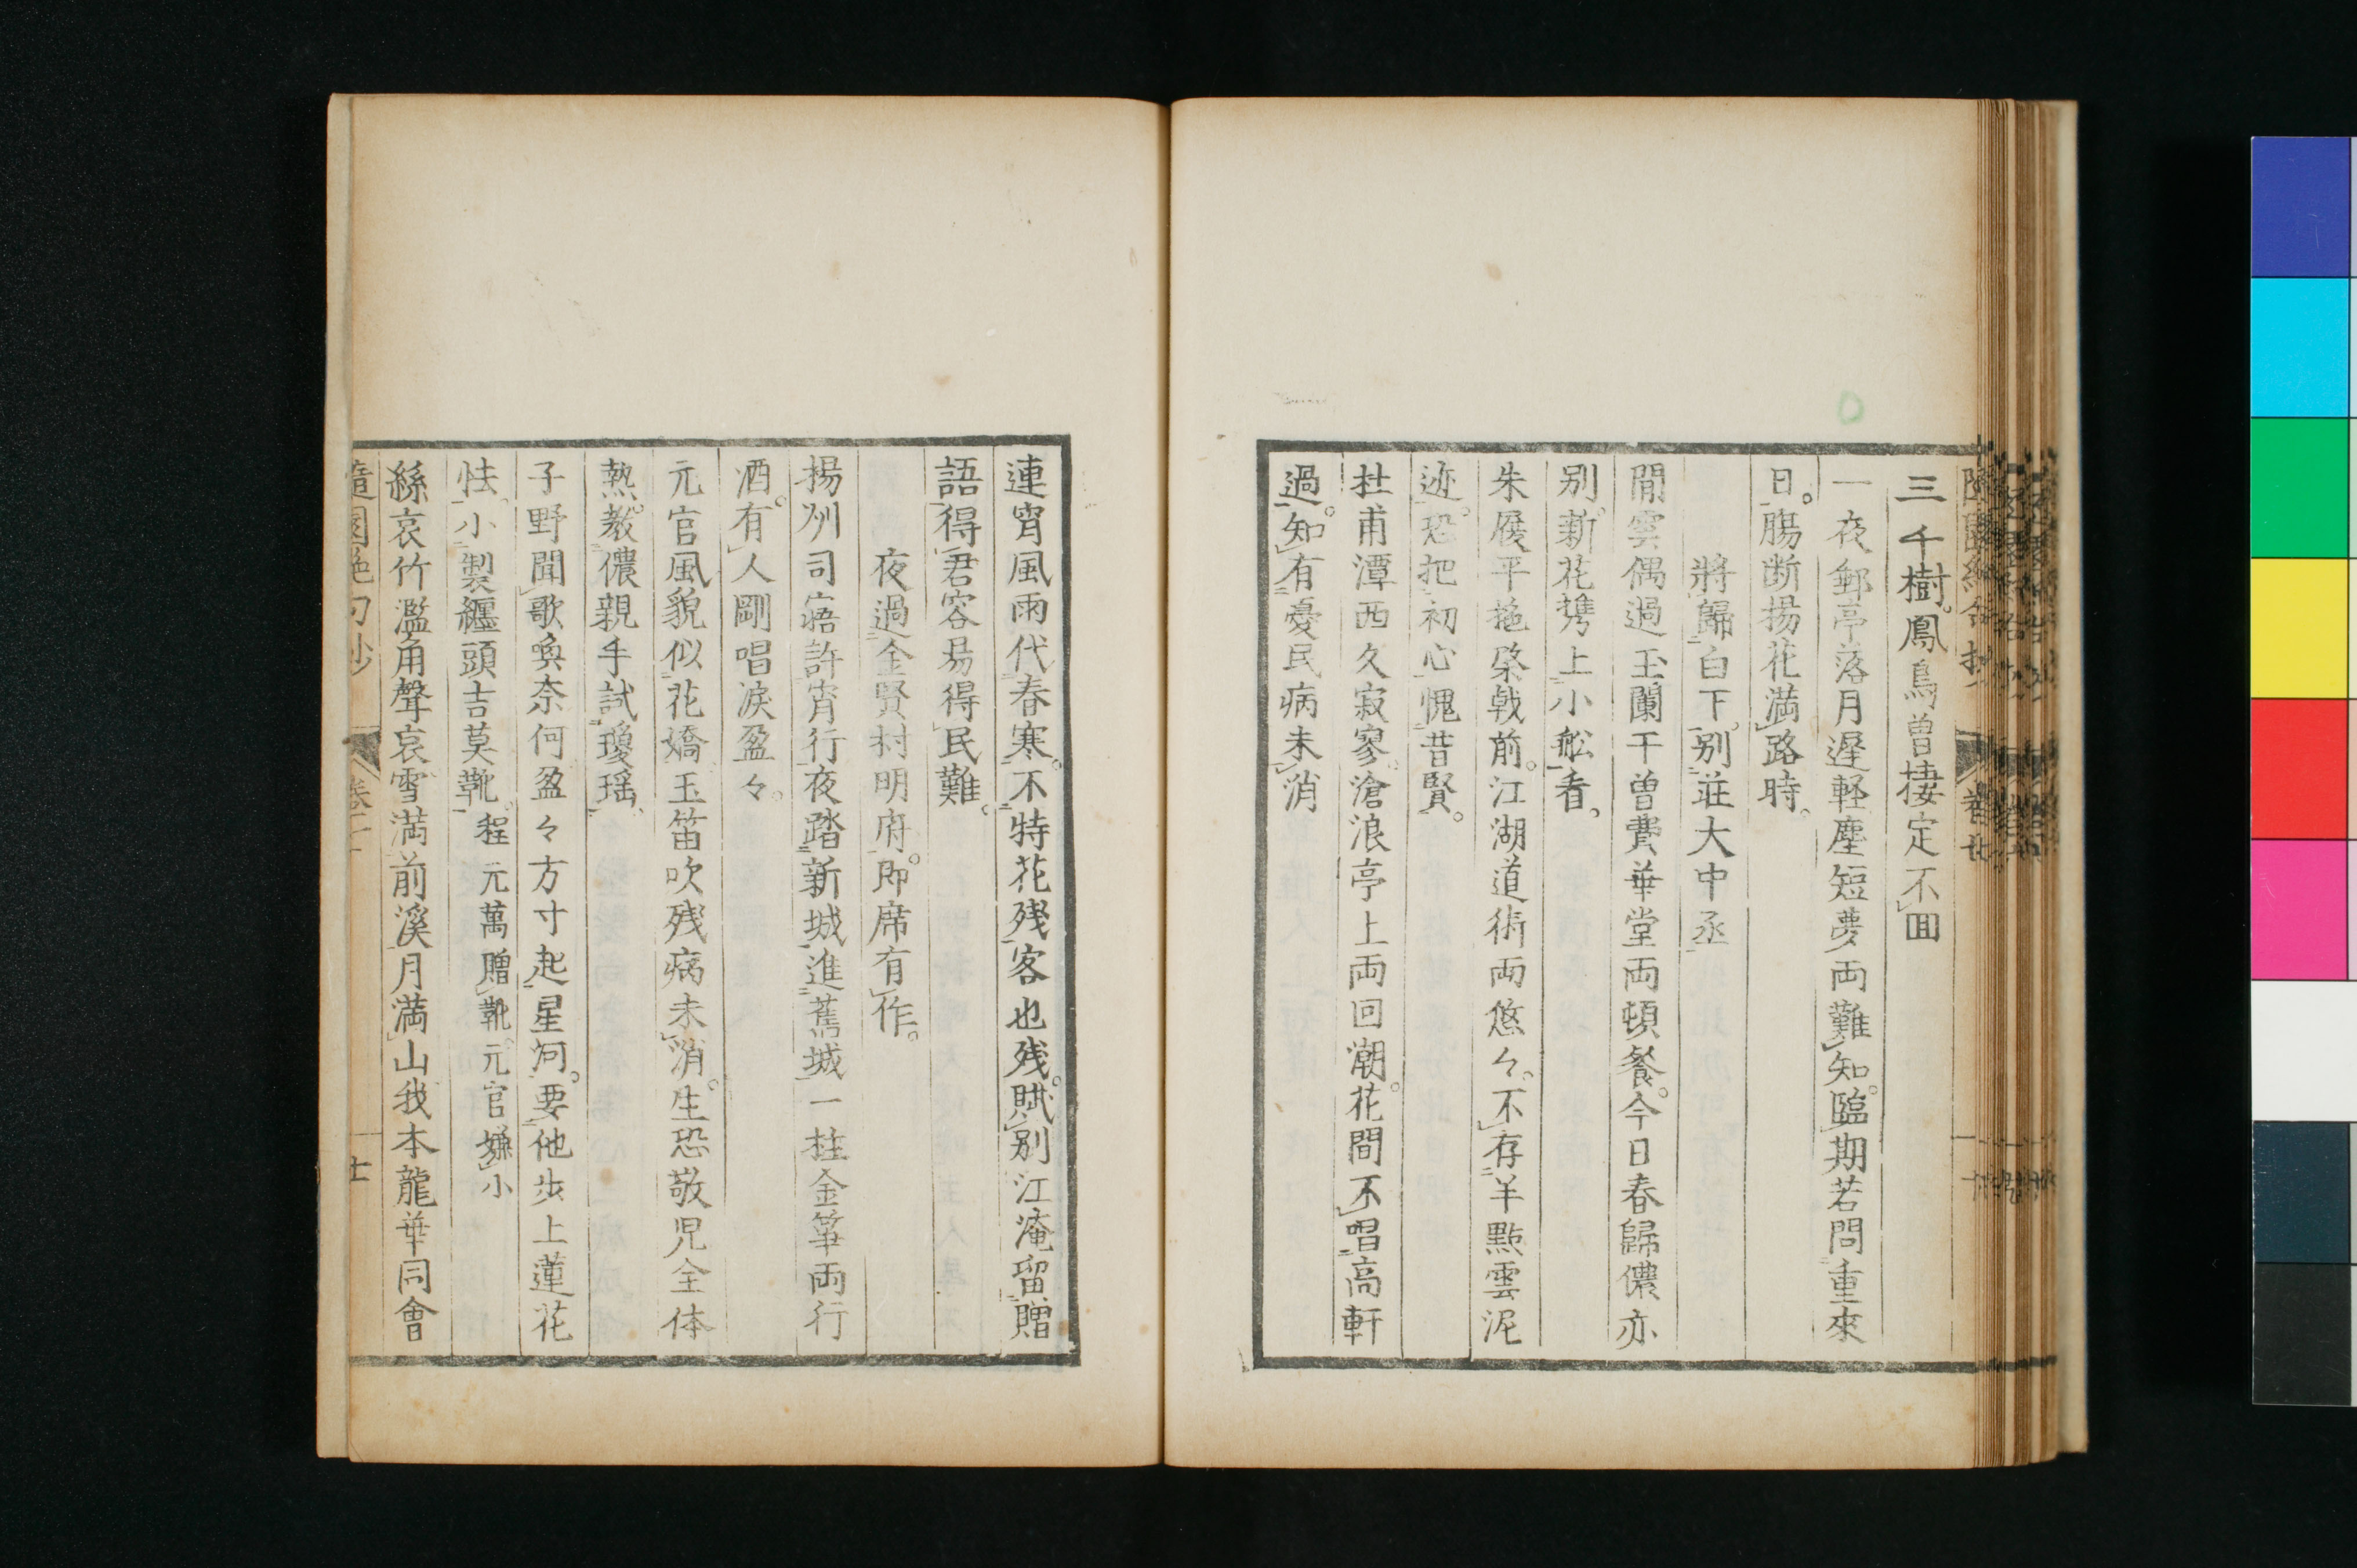 三千樹鳳鳥曽棲定不囬
一夜郵亭落月遅軽塵短夢両難知臨期若問重來
日腸断揚花満路時
將歸白下別莊大中丞
閒雲偶過玉闌干曽費華堂両頓餐今日春歸儂亦
別新花携上小舩看
朱履平拖棨戟前江湖道術両悠々不存羊點雲泥
迹恐把初心愧昔賢
杜甫潭西久寂寥滄浪亭上両回潮花間不唱高軒
過知有憂民病未消
連宵風雨代春寒不特花残客也残賦別江淹留贈
語得君容易得民難
夜過金賢村明府即席有作
揚州司寤許宵行夜踏新城進舊城一柱金篳両行
酒有人剛唱淚盈々
元官風貌似花嬌玉笛吹残病未消生恐敬児全体
熱教儂親手試瓊瑶
子野聞歌喚奈何盈々方寸起星河要他歩上蓮花
怯小製纏頭吉莫靴 程元萬贈靴元官嫌小
絲哀竹濫角聲哀雪満前溪月満山我本龍華同會
隨園絶句抄 卷二